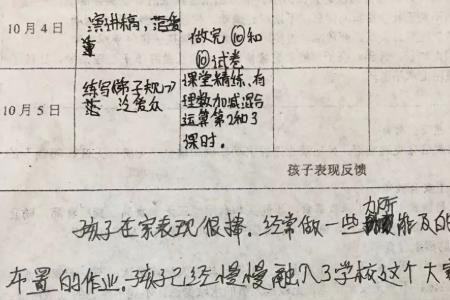 10月4日
演讲稿,范爱
做完⑩和
⑩试卷
10月5日
练写《弟子规》
范 泛爱众
课堂精练、有
理数加减混合
运算第2和3
课时。
孩子表现反馈
孩子在家表现很棒,经常做一些力所能及的
布置的作业。孩子已经慢慢融入了学校这个大家